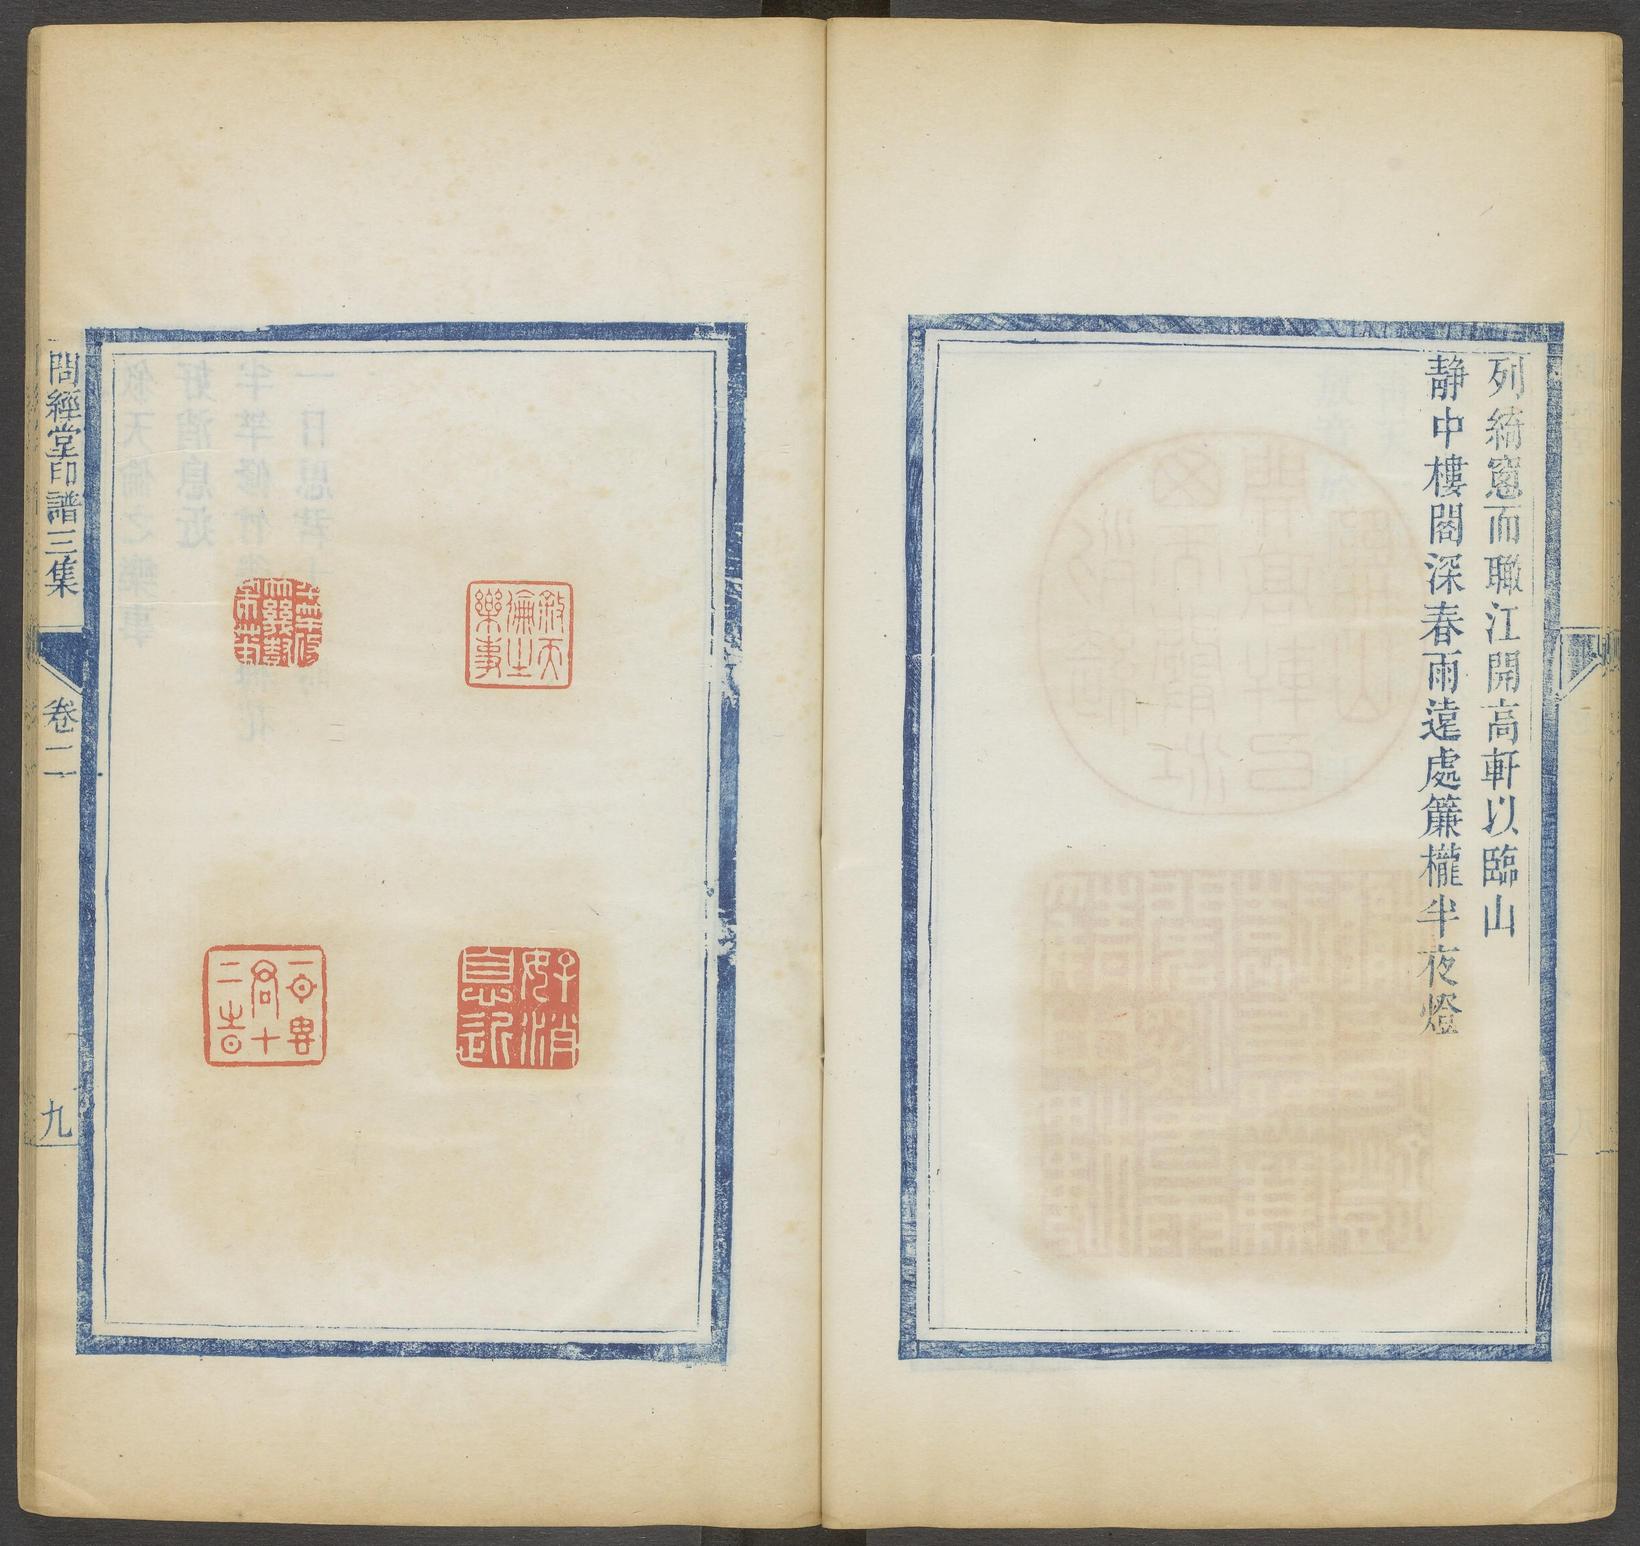 列綺窻而瞰江開高軒以臨山
靜中樓閣深春雨遠處簾櫳半夜燈
敘天
倫之
樂事
好消
息近
一日思
君十
二時
問經堂印譜三集
卷二
九